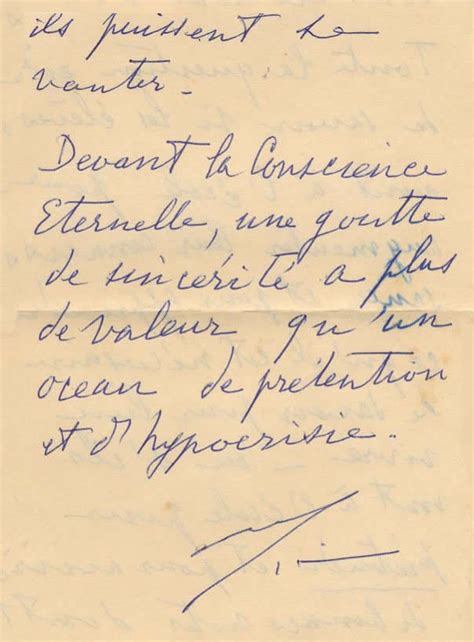 ils puissent se
vanter.
Devant la Conscience
Eternelle, une goutte
de sincérité a plus
de valeur qu'un
ocean de pretention
et d'hypocrisie.